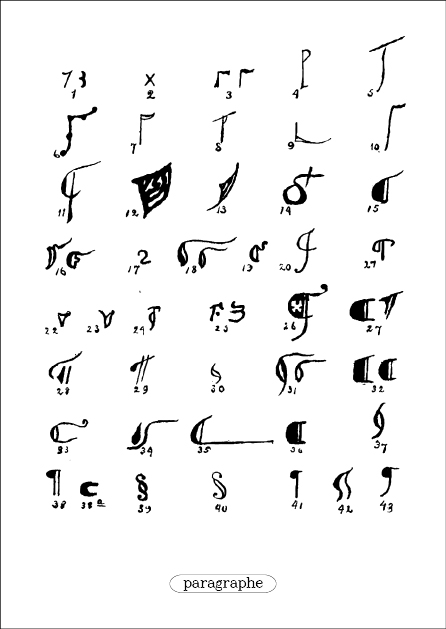 1 2 3 4 5
6 7 8 9 10
11 12 13 14 15
16 17 18 19 20 21
22 23 24 25 26 27
28 29 30 31 32
33 34 35 36 37
38 38a 39 40 41 42 43
paragraphe